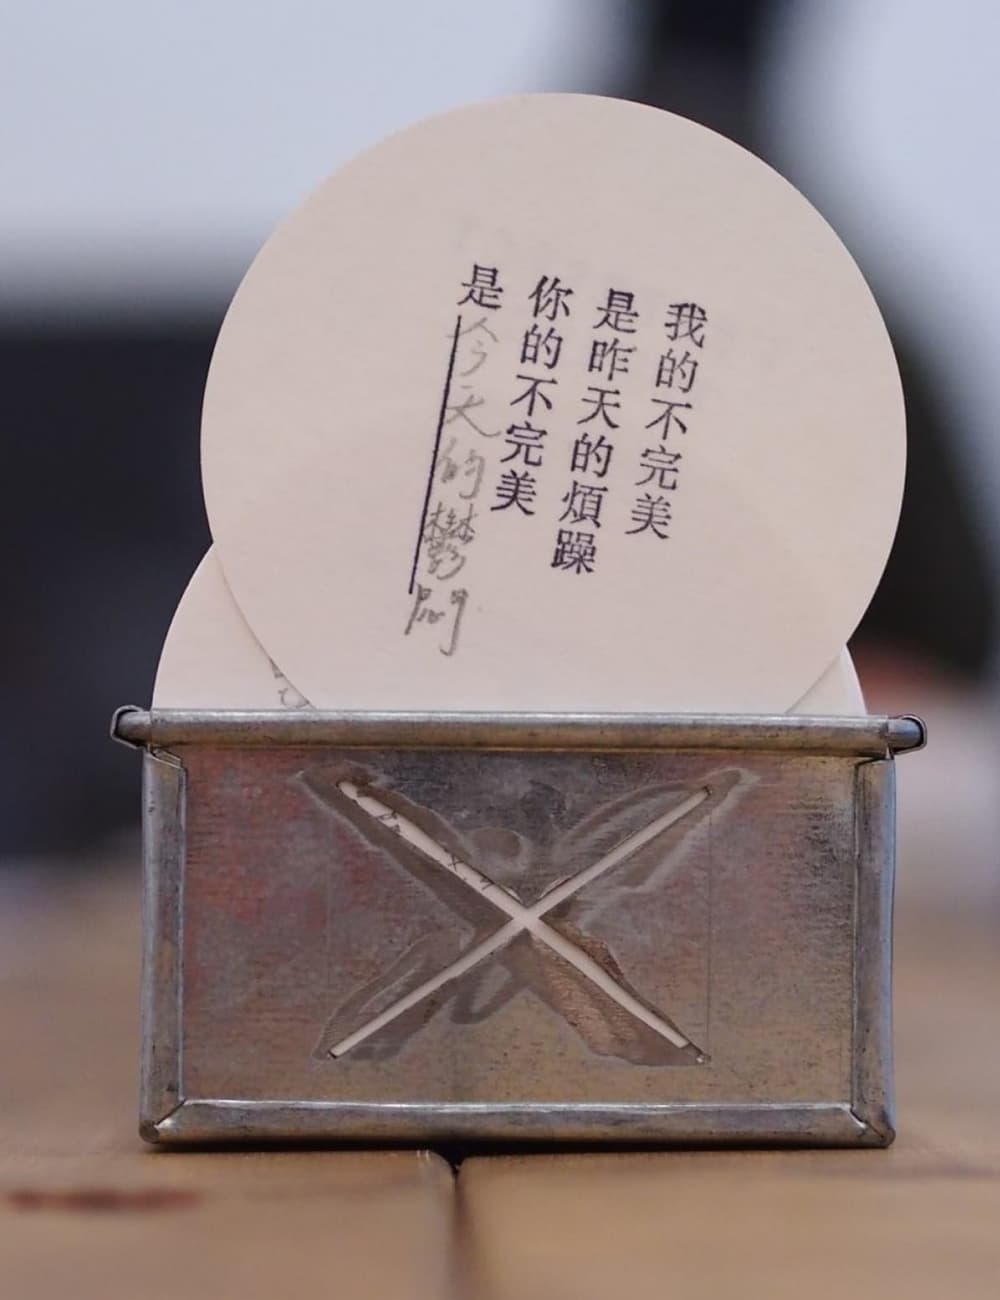 我的不完美
是昨天的煩躁
你的不完美
是今天的鬱悶